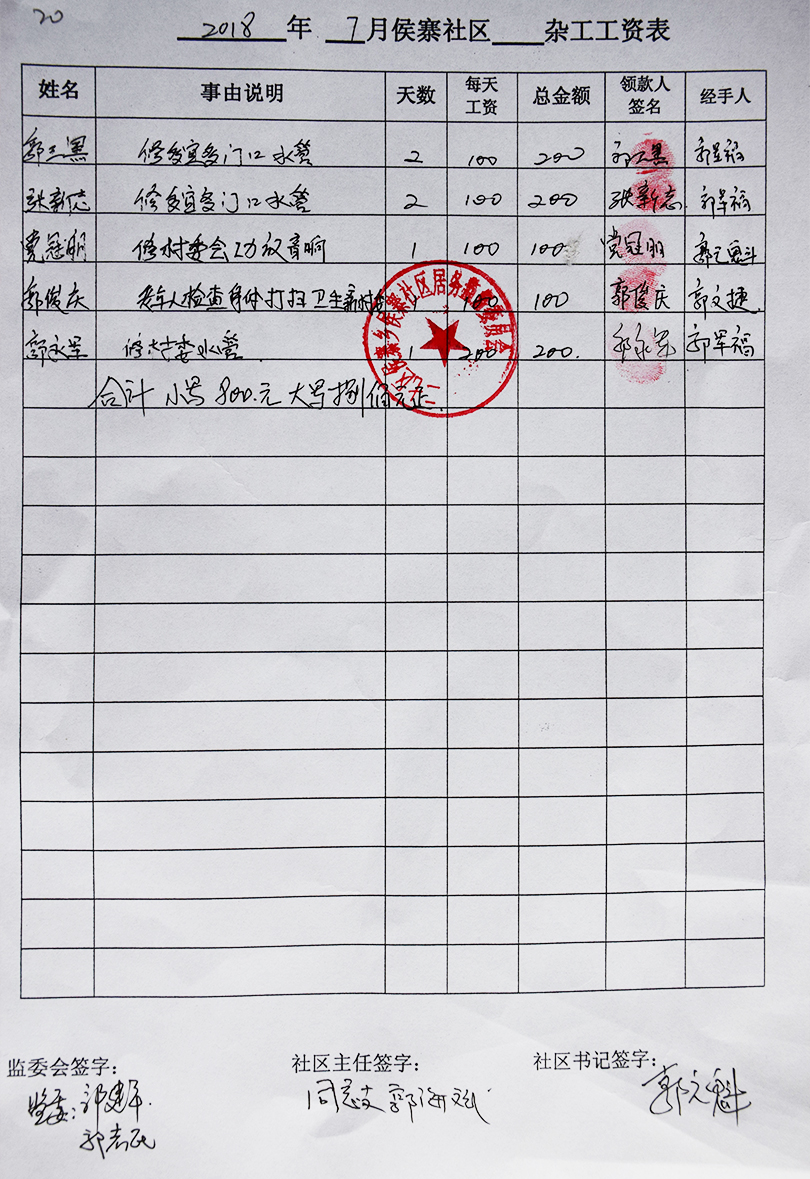 20
2018 年 7月侯寨社区 杂工工资表
姓名 事由说明 天数 每天工资 总金额 领款人签名 经手人
郭三黑 修 门口水管 2 100 200 郭三黑 郭军福
张新志 修 门口水管 2 100 200 张新志 郭军福
党冠明 修村委会功放音响 1 100 100 党冠明 郭元魁
郭俊庆 老年人检查身体打扫卫生 100 100 郭俊庆 郭文捷
郭永军 修村委水管 1 200 200. 郭永军 郭军福
合计 小写 800.元 大写捌佰元正
监委会签字: 社区主任签字: 社区书记签字:
监委:郭建军 同意支 郭海斌 郭元魁
郭志民